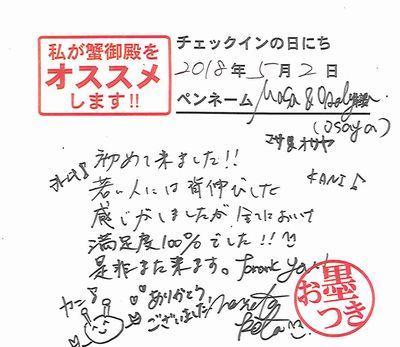 私が蟹御殿を
オススメ
します!!
チェックインの日にち
2018年5月2日
ペンネーム Masa &
(osaya)
マサ&オサヤ
初めて来ました!!
若い人には背伸びした
感じがしましたが全てにおいて
満足度100%でした!!
是非また来ます。Thank you!
KANI♪
カニ
ありがとう
ございました!
お墨
つき